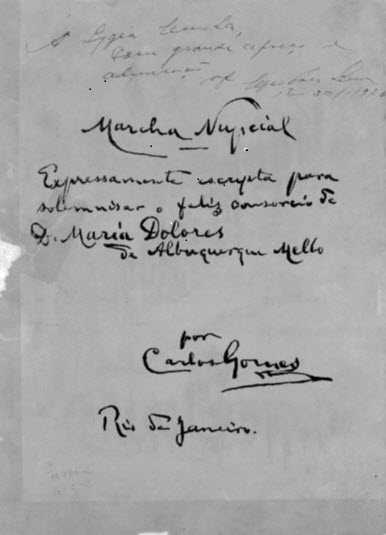 A Lygia
Com grande apreço e
admiração of
Rio
Marcha Nupcial
Expressamente escripta para
solemnisar o feliz consorcio de
D. Maria Dolores
de Albuquerque Mello
por
Carlos Gomes
Rio de Janeiro.